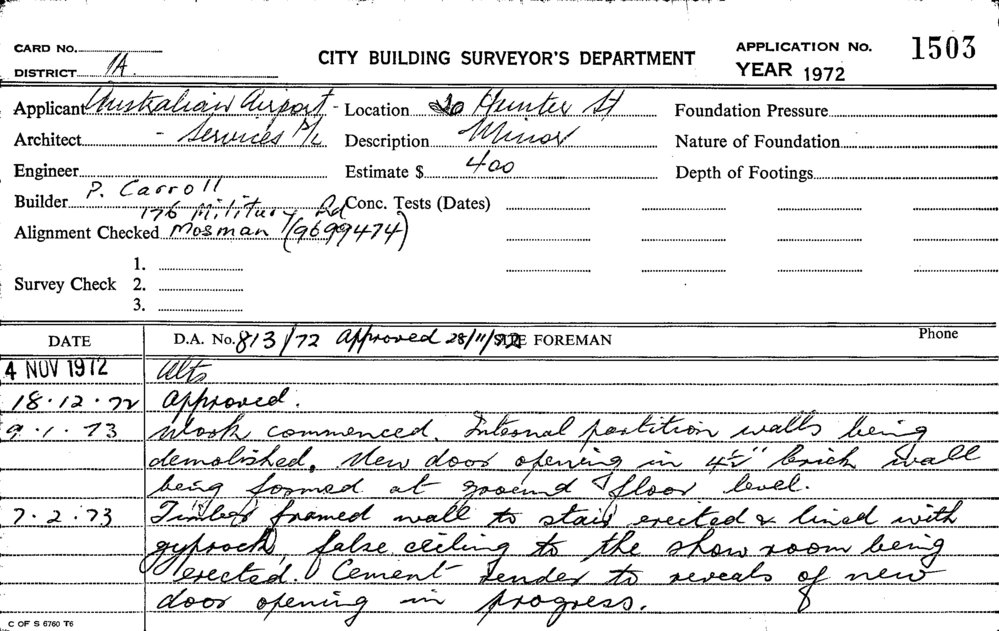 CARD No.
CITY BUILDING SURVEYOR'S DEPARTMENT
APPLICATION No. 1503
DISTRICT 1A.
YEAR 1972
Applicant Australian Airport - Location 20 Hunter St Foundation Pressure
Architect - Services P/L Description Minor Nature of Foundation
Engineer Estimate $ 400 Depth of Footings
Builder P. Carroll
176 Military Rd Conc. Tests (Dates)
Alignment Checked Mosman (9699474)
1.
Survey Check 2.
3.
DATE D.A. No. 813/72 Approved 28/11/72 SITE FOREMAN Phone
4 NOV 1972 Alts
18.12.72 Approved.
9.1.73 Work commenced. Internal partition walls being
demolished. New door opening in 4½" brick wall
being formed at ground floor level.
7.2.73 Timber framed wall to stair erected & lined with
gyprock, false ceiling to the show room being
erected. Cement render to reveals of new
door opening in progress.
C OF S 6760 T6